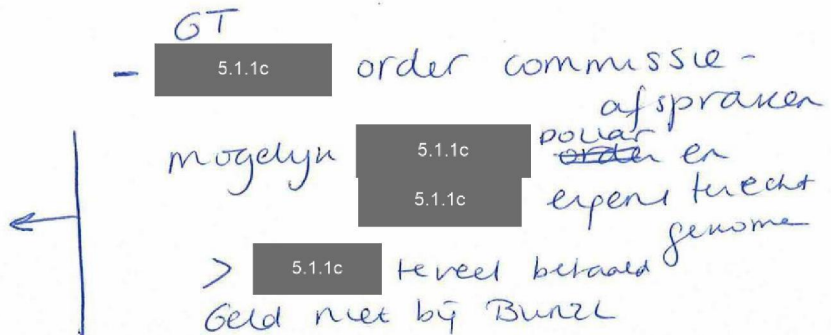 GT
- 5.1.1c order commissie-
afspraken
mogelijk 5.1.1c dollar order en
5.1.1c terecht
genome
> 5.1.1c teveel betaald
Geld niet bij Bunzl